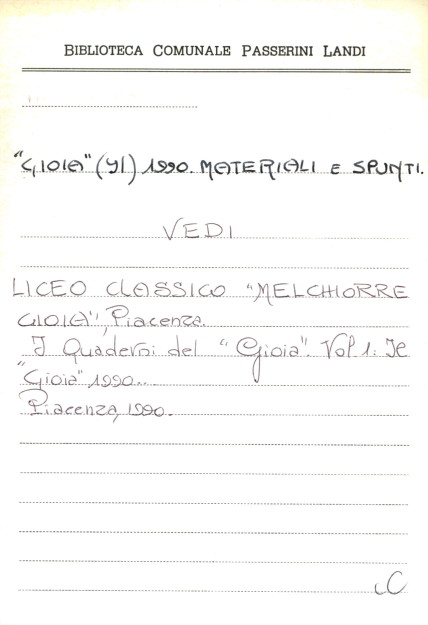 BIBLIOTECA COMUNALE PASSERINI LANDI
"GIOIA" (Il) 1990. MATERIALI E SPUNTI.
VEDI
LICEO CLASSICO "MELCHIORRE
GIOIA", Piacenza.
I Quaderni del "Gioia". Vol 1: Il
"Gioia" 1990..
Piacenza, 1990.